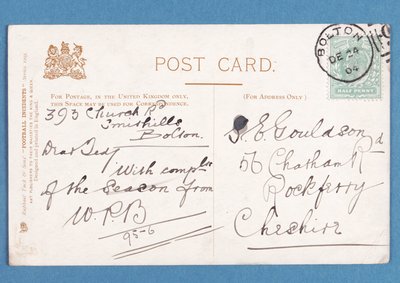 POST CARD.
FOR POSTAGE, IN THE UNITED KINGDOM ONLY,
THIS SPACE MAY BE USED FOR CORRESPONDENCE.
(FOR ADDRESS ONLY.)
BOLTON
DE 24
04
HALF PENNY
393 Church Rd
Smithills
Bolton.
With compts
of the Season from
W.P.B
95-6
S. E. Gouldson
56 Chatham Rd
Rockferry
Cheshire
"FOOTBALL INCIDENTS"
Designed and printed in England.